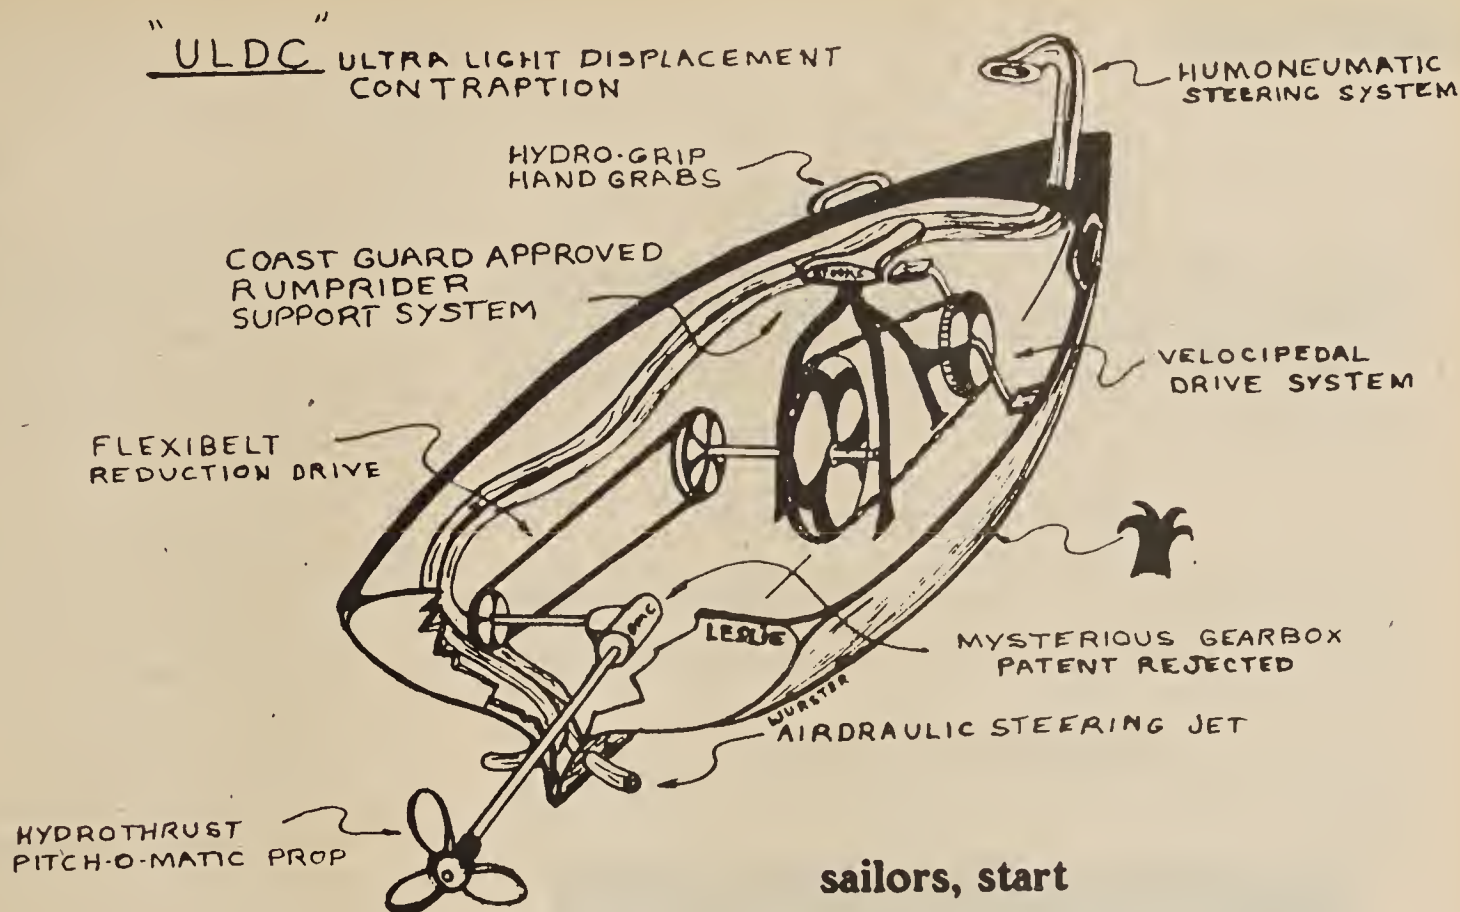 "ULDC" ULTRA LIGHT DISPLACEMENT
CONTRAPTION
HUMONEUMATIC
STEERING SYSTEM
HYDRO-GRIP
HAND GRABS
COAST GUARD APPROVED
RUMPRIDER
SUPPORT SYSTEM
VELOCIPEDAL
DRIVE SYSTEM
FLEXIBELT
REDUCTION DRIVE
OMC
LESLIE
MYSTERIOUS GEARBOX
PATENT REJECTED
WURSTER
AIRDRAULIC STEERING JET
HYDROTHRUST
PITCH-O-MATIC PROP
sailors, start